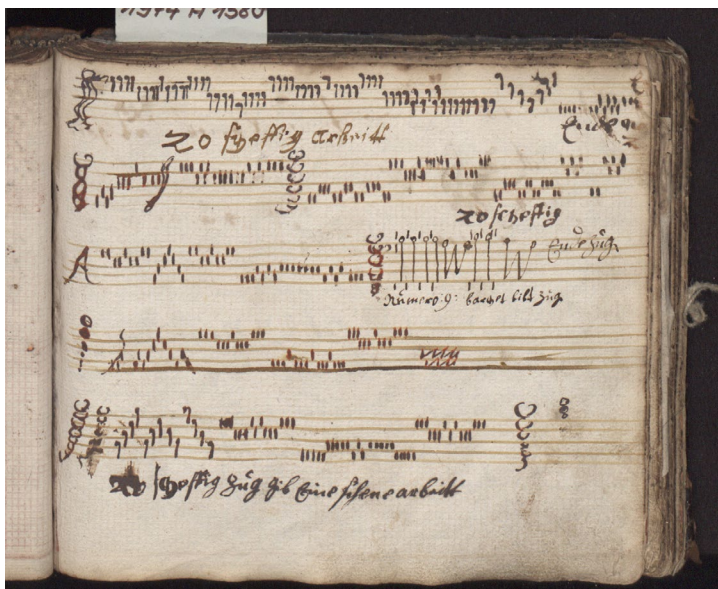 1974 A 1380
20 scheftig arbeitt
Ende
20 scheftig
Ende zug
A
Numero: 9: barhet bild zug
20 scheftig zug gib Eine schene arbeitt